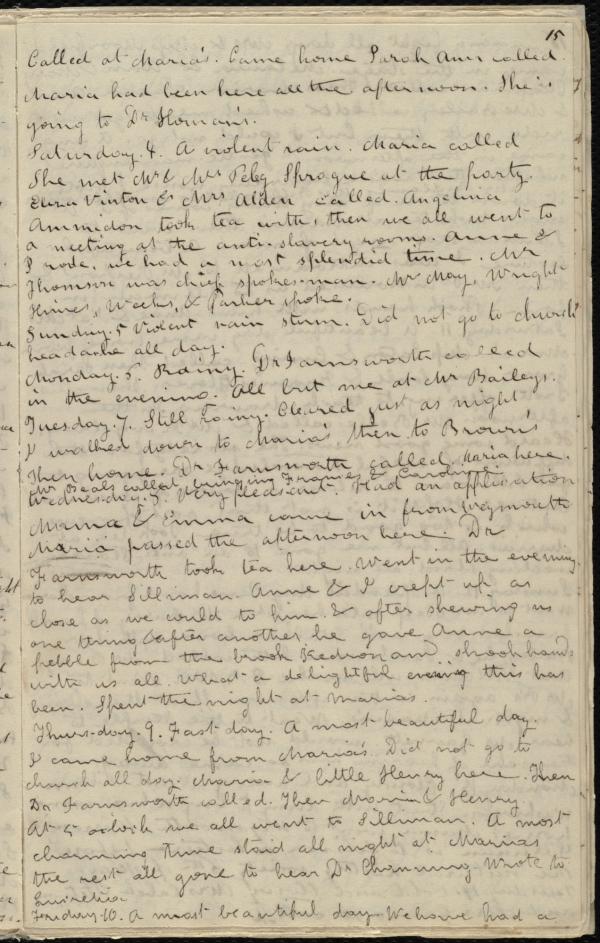 15
Called at Maria's. Came home Sarah Ann called.
Maria had been here all the afternoon. She is
going to Dr Homan's.
Saturday. 4. A violent rain. Maria called
She met Mr & Mrs Peleg Sprague at the party.
Eliza Vinton & Mrs Alden called. Angelina
Ammidon took tea with, then we all went to
a meeting at the anti-slavery rooms. Anne &
I rode, we had a most splendid time. Mr
Thomson was chief spokes-man. Mr May, Wright
Himes, Weeks, & Parker spoke.
Sunday. 5 Violent rain storm. Did not go to church
headache all day.
Monday. 6. Rainy. Dr Farnsworth called
in the evening. All but me at Mr Baileys.
Tuesday. 7. Still rainy. Cleared just as night
I walked down to Maria's, then to Brown's
then home. Dr Farnsworth called, Maria here.
Mr Beals called, bringing Frances & Caroline
Wednesday. 8. Very pleasant. Had an application
Mama & Emma came in from Weymouth
Maria passed the afternoon here. Dr
Farnsworth took tea here. Went in the evening
to hear Silliman. Anne & I crept up as
close as we could to him. & after shewing us
one thing after another he gave Anne a
pebble from the brook Kedron, and shook hands
with us all. What a delightful evening this has
been. Spent the night at Maria's.
Thursday. 9. Fast day. A most beautiful day.
I came home from Maria's. Did not go to
church all day. Maria & little Henry here. Then
Dr Farnsworth called. Then Maria & Henry
At 5 oclock we all went to Silliman. A most
charming time staid all night at Marias
the rest all gone to hear Dr Channing. Wrote to
Lucretia
Friday 10. A most beautiful day We have had a